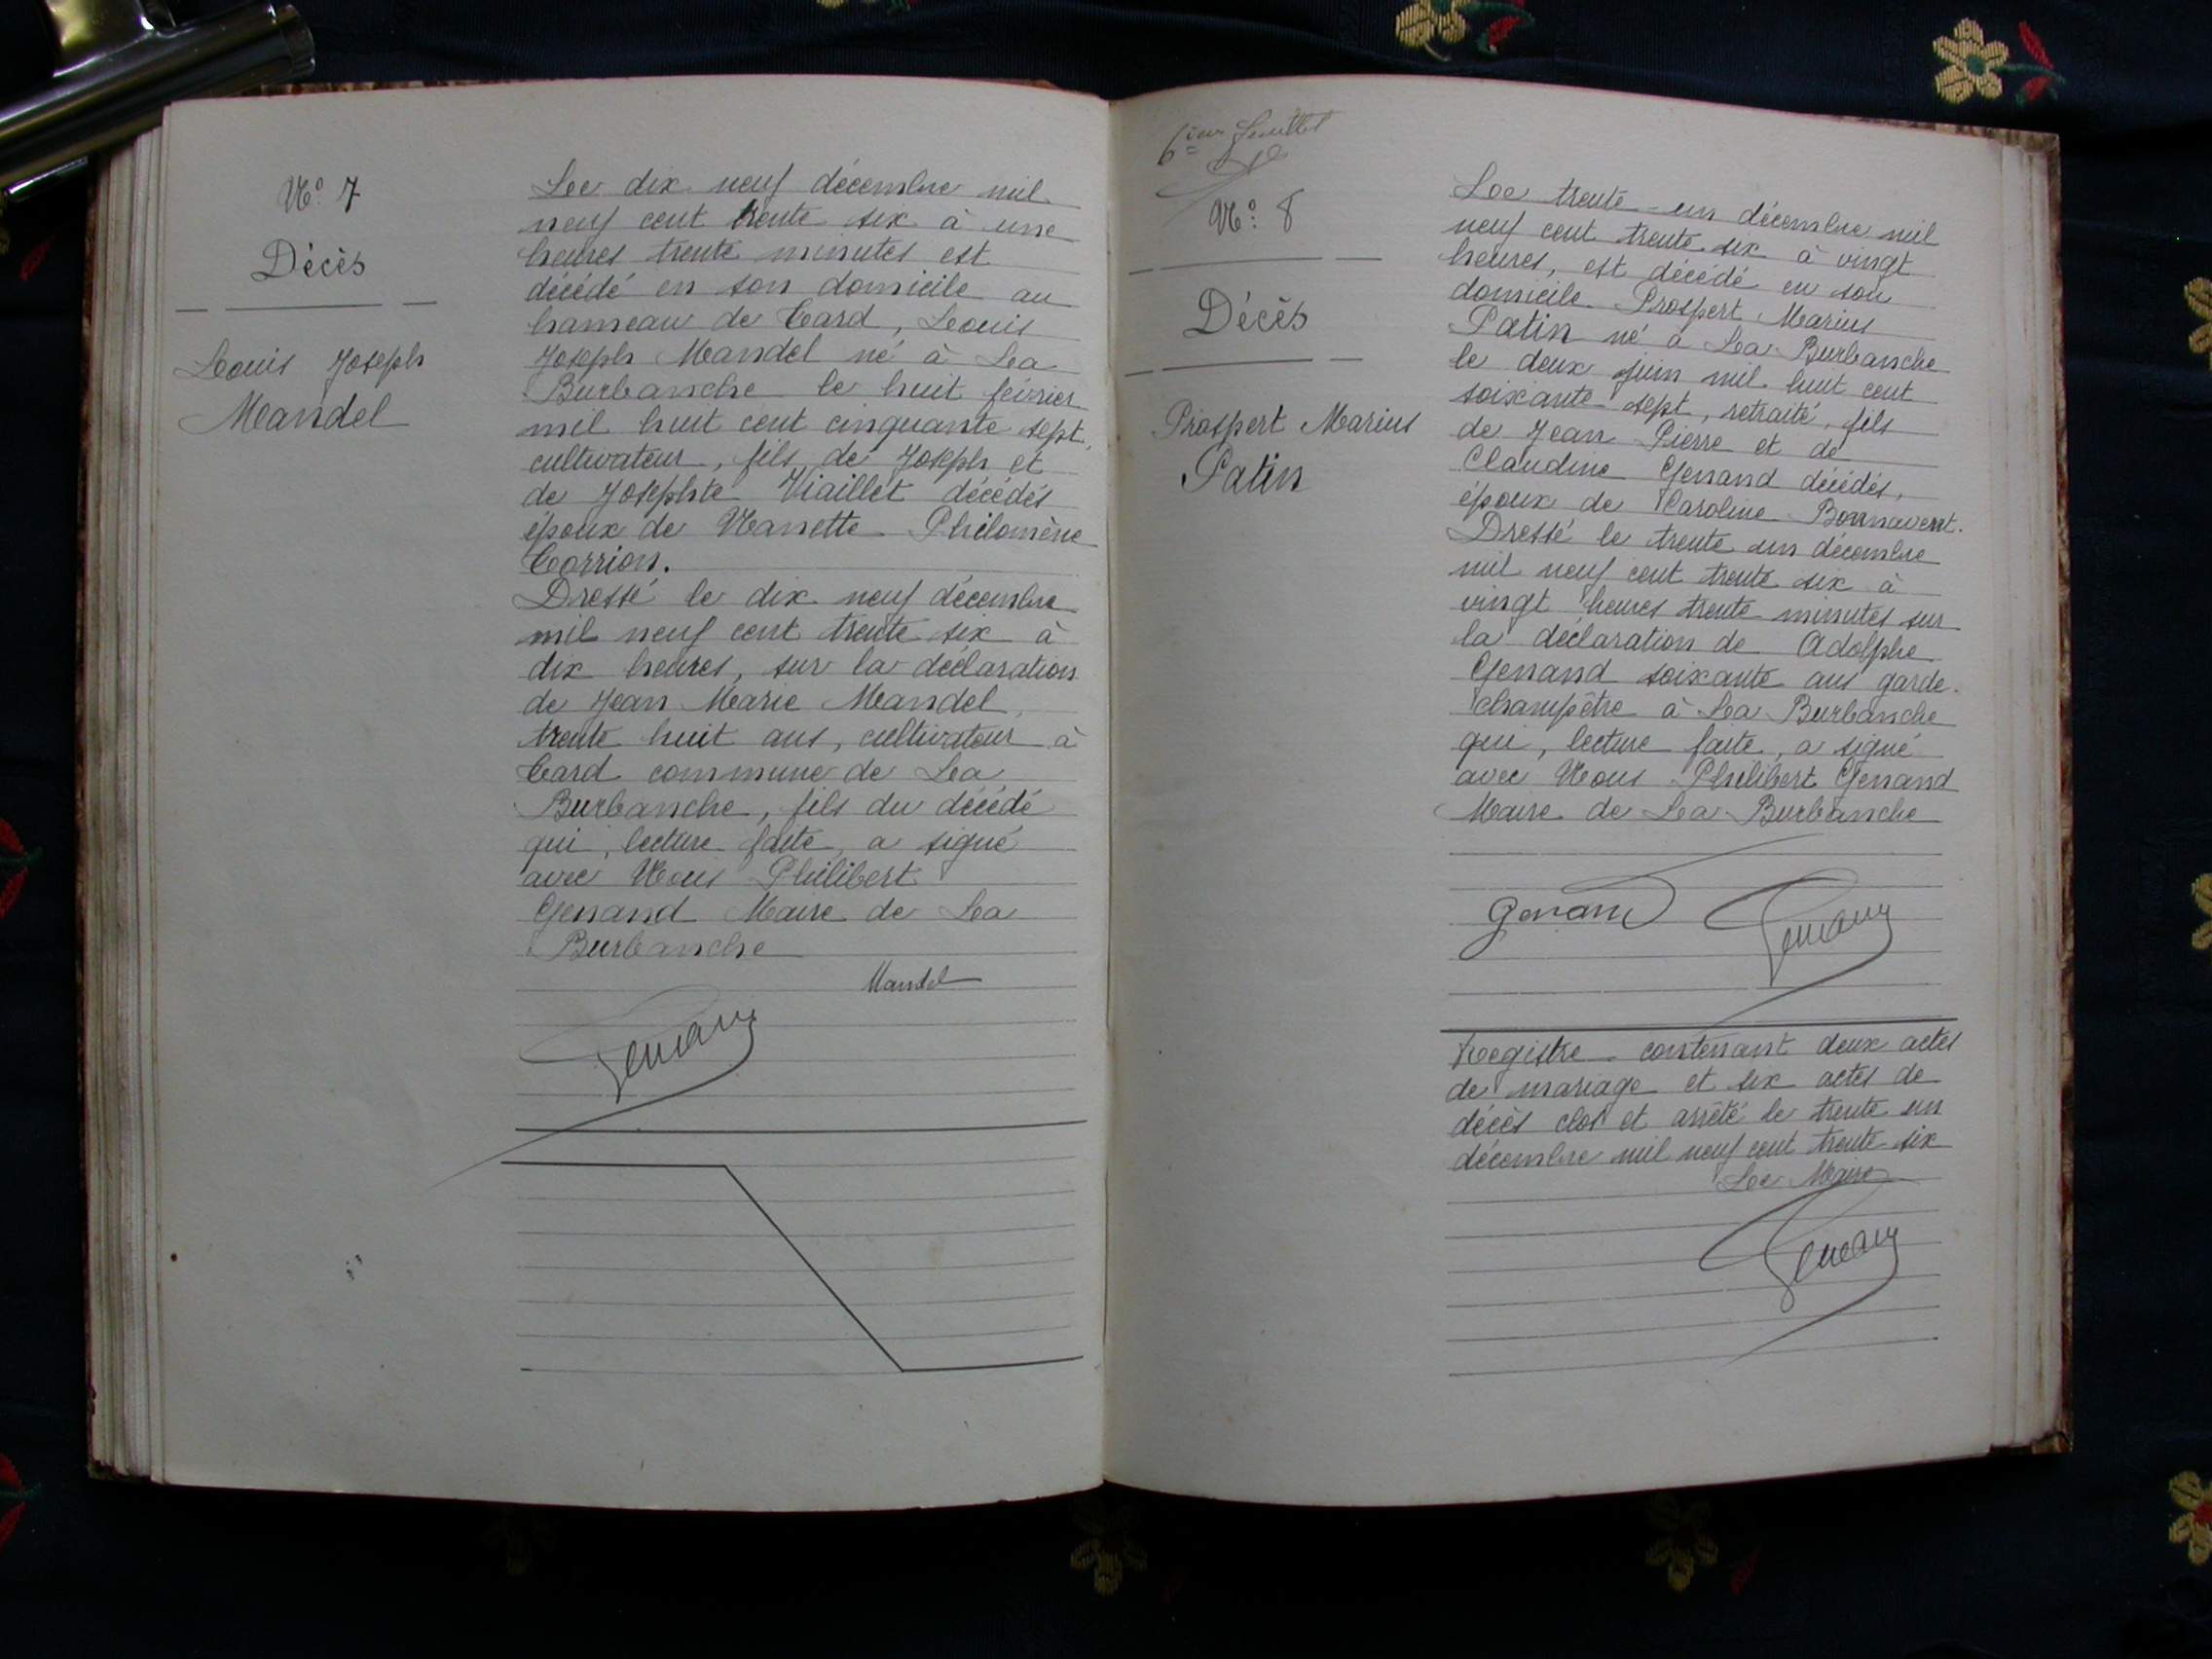 N° 7
Décès
Louis Joseph
Mandel
Le dix neuf décembre mil
neuf cent trente six à une
heures trente minutes est
décédé en son domicile au
hameau de Card, Louis
Joseph Mandel né à La
Burbanche le huit février
mil huit cent cinquante sept,
cultivateur, fils de Joseph et
de Josephte Viaillet décédés
époux de Nanette Philomène
Corrion.
Dressé le dix neuf décembre
mil neuf cent trente six à
dix heures, sur la déclaration
de Jean Marie Mandel,
trente huit ans, cultivateur à
Card commune de La
Burbanche, fils du décédé
qui, lecture faite, a signé
avec Nous Philibert
Genand Maire de La
Burbanche
Mandel
Genand
6ème feuillet
N° 8
Décès
Prospert Marius
Patin
Le trente-un décembre mil
neuf cent trente six à vingt
heures, est décédé en son
domicile Prospert Marius
Patin né à La Burbanche
le deux juin mil huit cent
soixante sept, retraité, fils
de Jean Pierre et de
Claudine Genand décédés,
époux de Caroline Bonnavent.
Dressé le trente un décembre
mil neuf cent trente six à
vingt heures trente minutes sur
la déclaration de Adolphe
Genand soixante ans garde-
champêtre à La Burbanche
qui, lecture faite, a signé
avec Nous Philibert Genand
Maire de La Burbanche
Genand Genand
Registre contenant deux actes
de mariage et six actes de
décès clos et arrêté le trente un
décembre mil neuf cent trente six
Le Maire
Genand